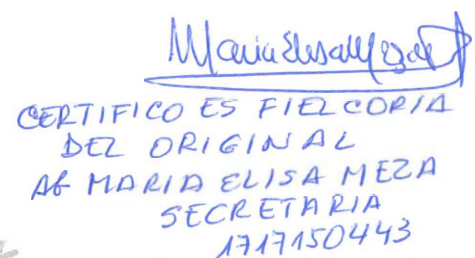 Maria Elisa Meza
CERTIFICO ES FIEL COPIA
DEL ORIGINAL
AB MARIA ELISA MEZA
SECRETARIA
1717150443